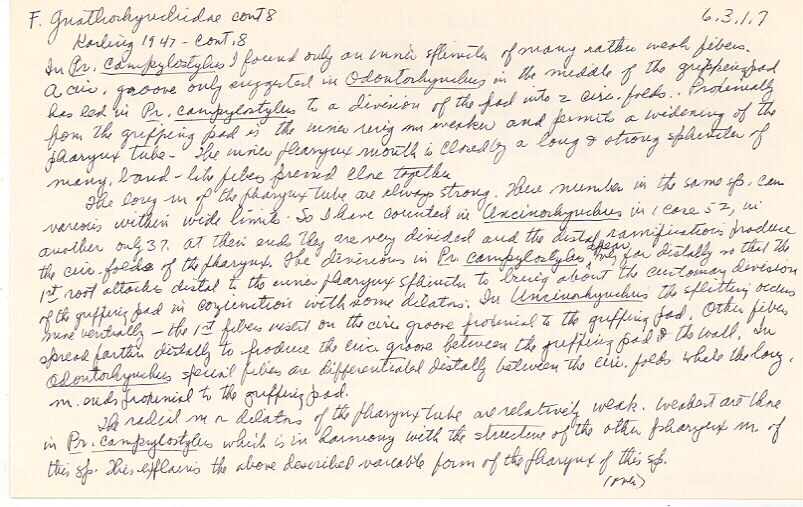 F. Gnathorhynchidae cont 8
6.3.1.7
Karling 1947 - cont. 8
In Pr. campylostylus I found only an inner sphincter of many rather weak fibers.
A circ. groove only suggested in Odontorhynchus in the middle of the gripping pad
has led in Pr. campylostylus to a division of the pad into 2 circ. folds. Proximally
from the gripping pad is the inner ring m weaker and permits a widening of the
pharynx tube. The inner pharynx mouth is closed by a long & strong sphincter of
many, band-like fibers pressed close together
The long. m of the pharynx tube are always strong. There number in the same sp. can
various within wide limits. So I have counted in Uncinorhynchus in 1 case 52, in
another only 37. At their ends they are very divided and the distal ramifications produce
the circ. folds of the pharynx. The divisions in Pr. campylostylus appear only far distally so that the
1st root attaches distal to the inner pharynx sphincter to bring about the customary division
of the gripping pad in conjunction with some dilators. In Uncinorhynchus the splitting occurs
more ventrally - the 1st fibers insert on the circ. groove proximal to the gripping pad. Other fibers
spread farther distally to produce the circ groove between the gripping pad & the wall. In
Odontorhynchus special fibers are differentiated distally between the circ. folds while the long.
m. ends proximal to the gripping pad.
The radial m or dilators of the pharynx tube are relatively weak. Weakest are those
in Pr. campylostylus which is in harmony with the structure of the other pharynx m. of
this sp. This explains the above described variable form of the pharynx of this sp.
(over)